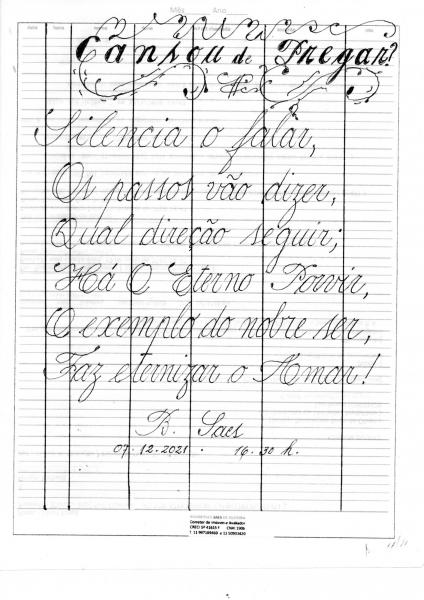 Mês Ano
Cansou de Pregar?
Silencia o falar,
Os passos vão dizer,
Qual direção seguir;
Há O Eterno Porvir,
O exemplo do nobre ser,
Faz eternizar o Amar!
B. Saes
07.12.2021. 16.30 h.
Corretor de Imóveis e Avaliador